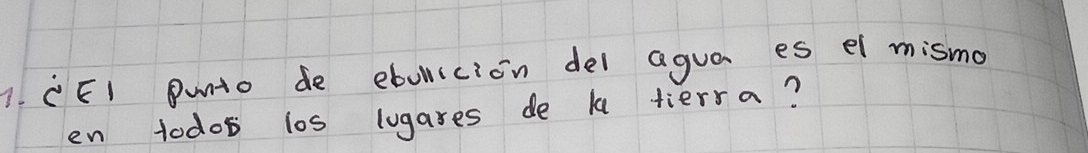 1. ¿El punto de ebullición del agua es el mismo
en todos los lugares de la tierra?